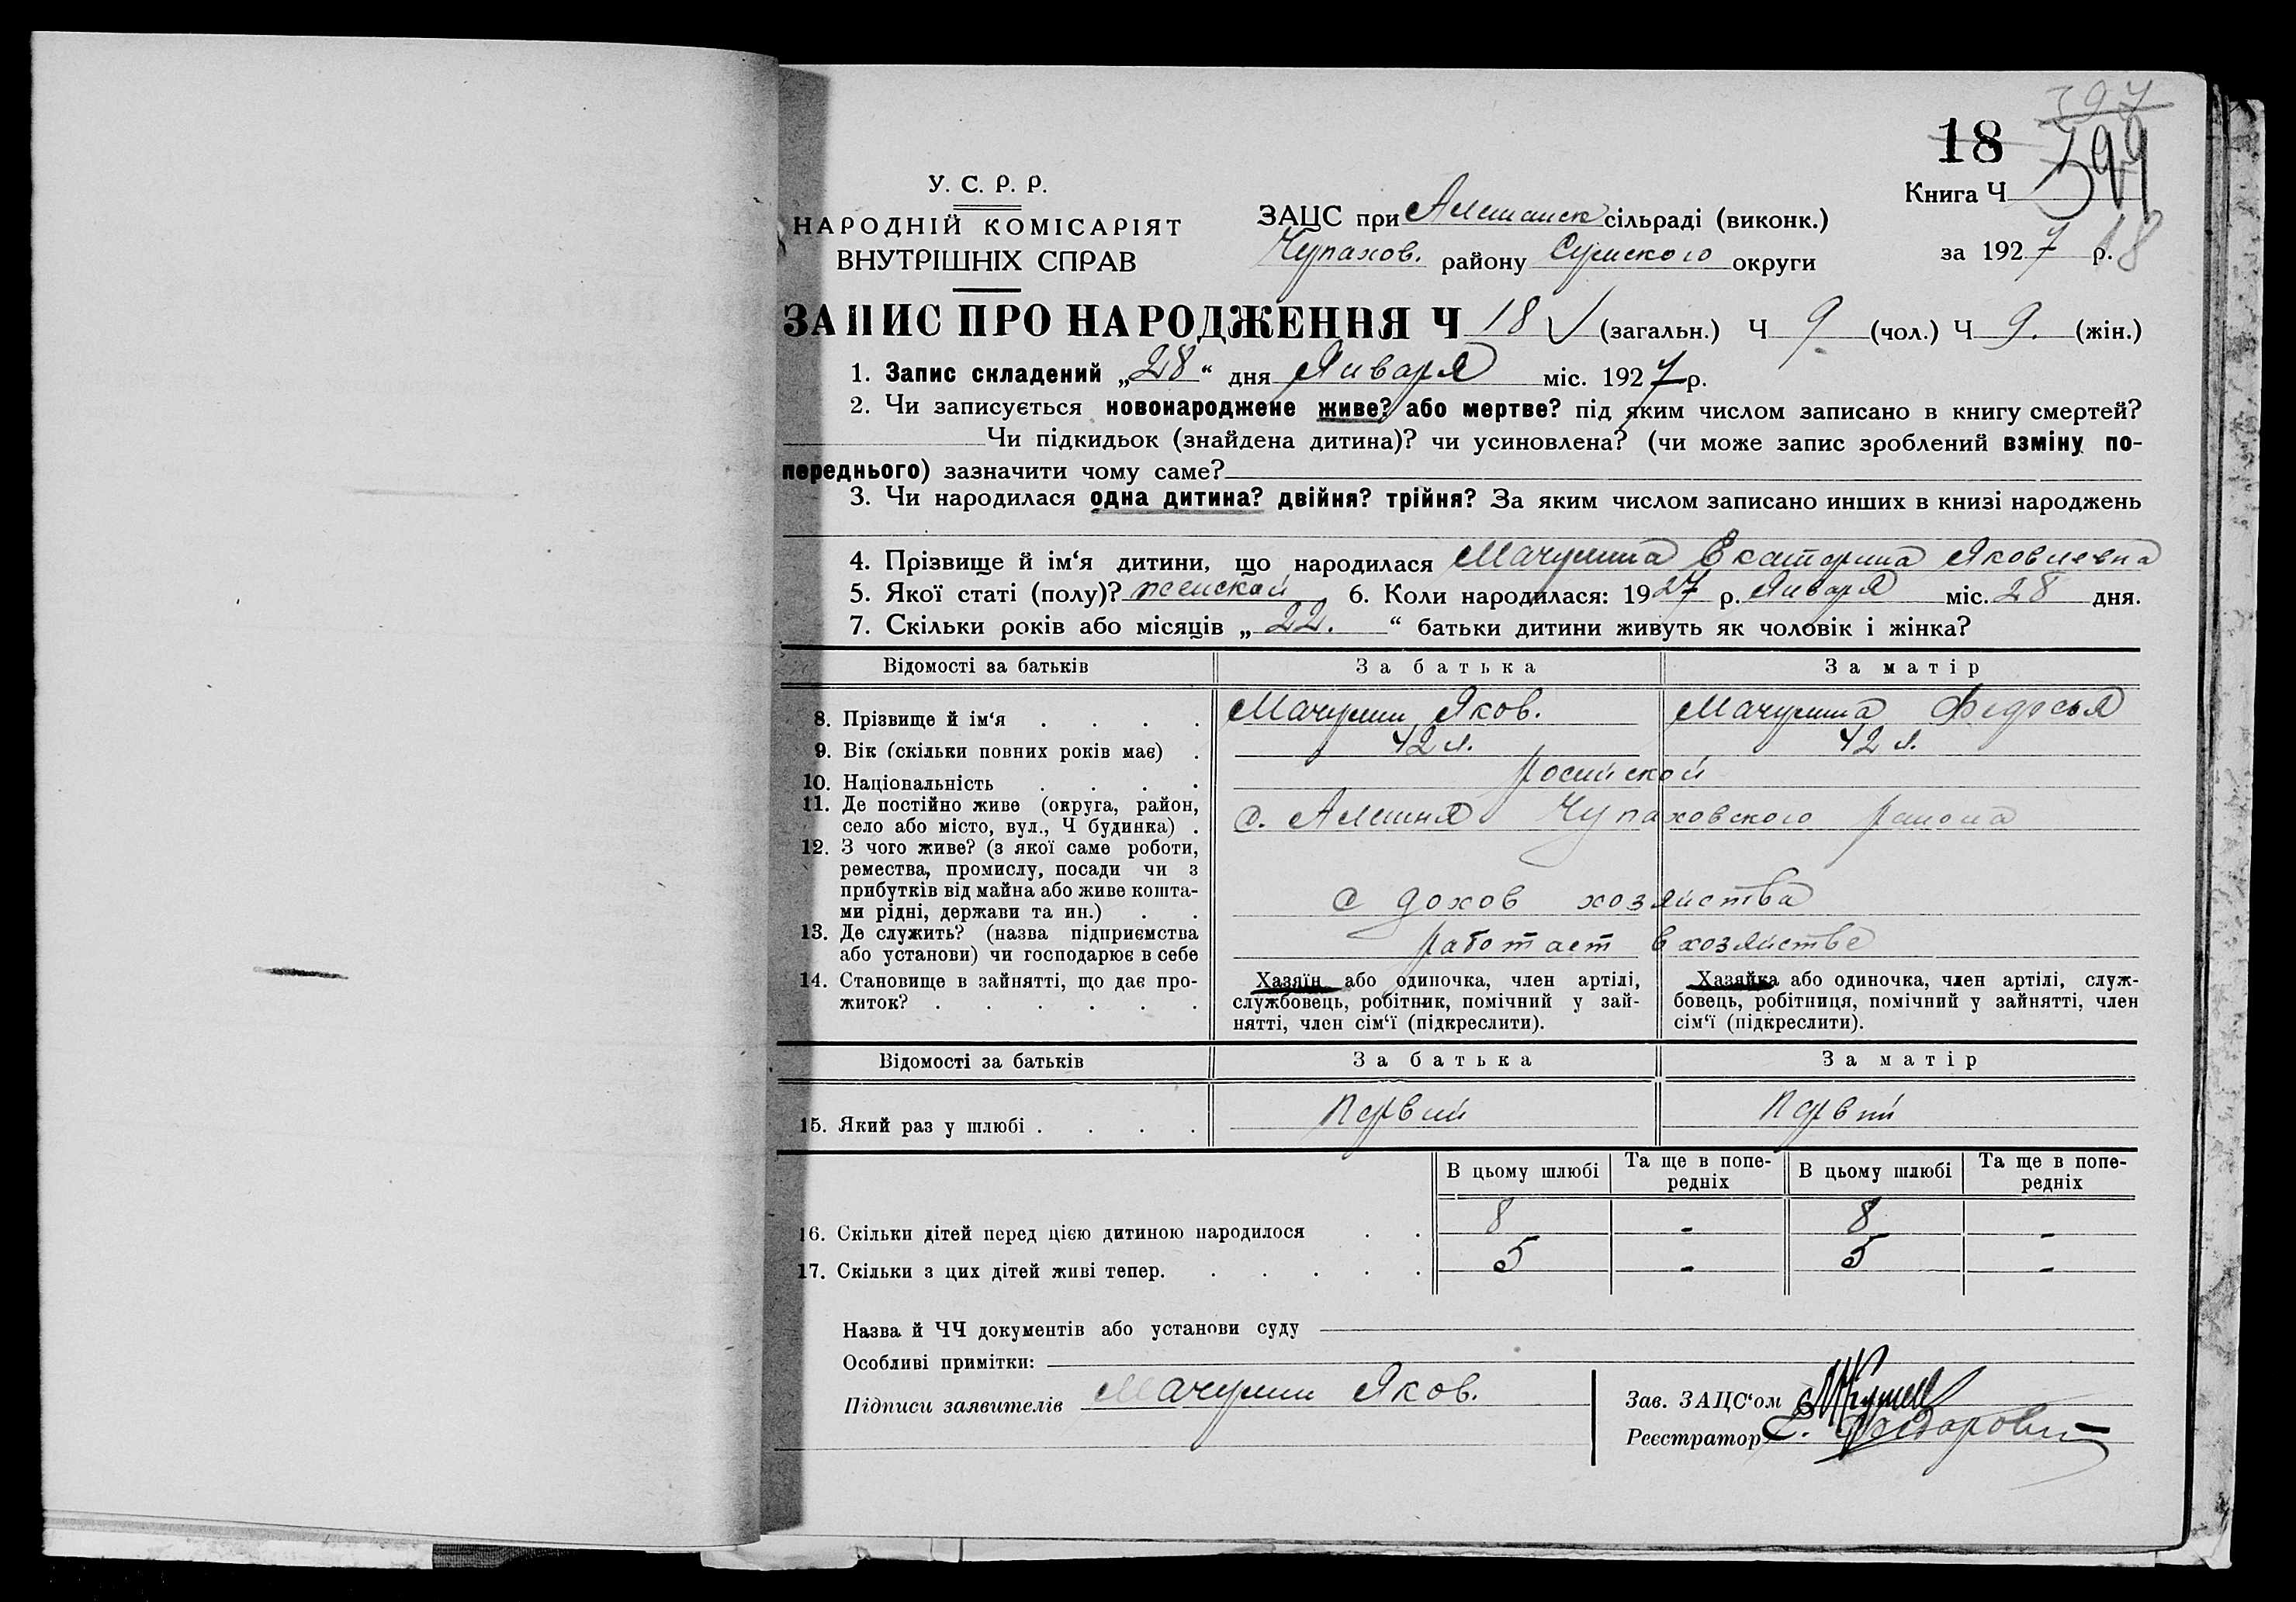 397
18 399
Книга Ч
У. С. Р. Р.
НАРОДНІЙ КОМІСАРІЯТ
ВНУТРІШНІХ СПРАВ
ЗАЦС при Алешанск сільраді (виконк.)
Чупахов. району Сумского округи
за 1927 р. 18
ЗАПИС ПРО НАРОДЖЕННЯ Ч 18 (загальн.) Ч 9 (чол.) Ч 9. (жін.)
1. Запис складений „28“ дня Января міс. 1927 р.
2. Чи записується новонароджене живе? або мертве? під яким числом записано в книгу смертей?
Чи підкидьок (знайдена дитина)? чи усиновлена? (чи може запис зроблений взміну по-
переднього) зазначити чому саме?
3. Чи народилася одна дитина? двійня? трійня? За яким числом записано инших в книзі народжень
4. Прізвище й ім‘я дитини, що народилася Мачулина Екатерина Яковлевна
5. Якої статі (полу)? женской 6. Коли народилася: 1927 р. Января міс. 28 дня.
7. Скільки років або місяців „22.“ батьки дитини живуть як чоловік і жінка?
Відомості за батьків За батька За матір
8. Прізвище й ім‘я . . . . Мачулин Яков. Мачулина Федосья
9. Вік (скільки повних років має) . 42 л. 42 л.
10. Національність . . . . росийской
11. Де постійно живе (округа, район,
село або місто, вул., Ч будинка) . с. Алешня Чупаховского района
12. З чого живе? (з якої саме роботи,
ремества, промислу, посади чи з
прибутків від майна або живе кошта-
ми рідні, держави та ин.) . . с дохов хозяйства
13. Де служить? (назва підприємства
або установи) чи господарює в себе работает в хозяйстве
14. Становище в зайнятті, що дає про-
житок? . . . . . .
Хазяїн або одиночка, член артілі,
службовець, робітник, помічний у зай-
нятті, член сім‘ї (підкреслити).
Хазяйка або одиночка, член артілі, служ-
бовець, робітниця, помічний у зайнятті, член
сім‘ї (підкреслити).
Відомості за батьків За батька За матір
15. Який раз у шлюбі . . . . первий первий
В цьому шлюбі Та ще в попе-
редніх В цьому шлюбі Та ще в попе-
редніх
16. Скільки дітей перед цією дитиною народилося . . 8 - 8 -
17. Скільки з цих дітей живі тепер. . . . . . 5 - 5 -
Назва й ЧЧ документів або установи суду
Особливі примітки:
Підписи заявителів Мачулин Яков.
Зав. ЗАЦС‘ом
Реєстратор